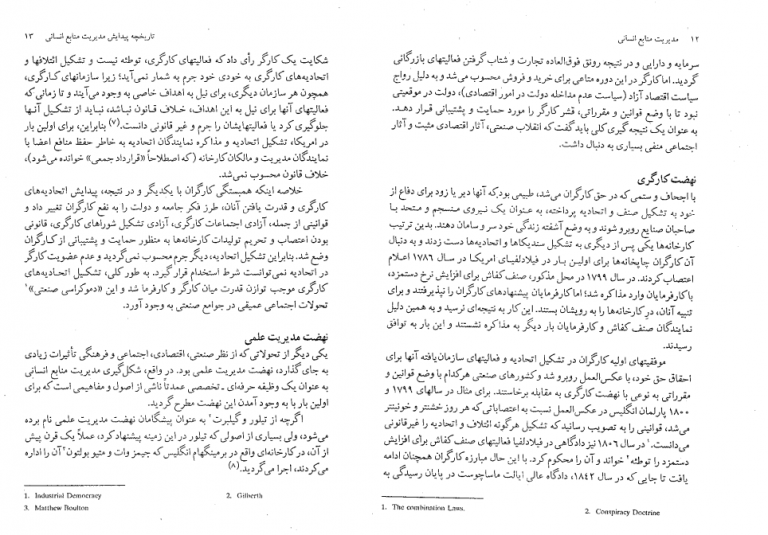 ۱۲ مدیریت منابع انسانی
سرمایه و دارایی و در نتیجه رونق فوق‌العاده تجارت و شتاب گرفتن فعالیتهای بازرگانی
گردید. اما کارگر در این دوره متاعی برای خرید و فروش محسوب می‌شد و به دلیل رواج
سیاست اقتصاد آزاد (سیاست عدم مداخله دولت در امور اقتصادی)، دولت در موقعیتی
نبود تا با وضع قوانین و مقرراتی، قشر کارگر را مورد حمایت و پشتیبانی قرار دهد.
به عنوان یک نتیجه‌گیری کلی باید گفت که انقلاب صنعتی، آثار اقتصادی مثبت و آثار
اجتماعی منفی بسیاری به دنبال داشت.
نهضت کارگری
با اجحاف و ستمی که در حق کارگران می‌شد، طبیعی بود که آنها دیر یا زود برای دفاع از
خود به تشکیل صنف و اتحادیه پرداخته، به عنوان یک نیروی منسجم و متحد با
صاحبان صنایع روبرو شوند و به وضع آشفته زندگی خود سر و سامان دهند. بدین ترتیب
کارخانه‌ها یکی پس از دیگری به تشکیل سندیکاها و اتحادیه‌ها دست زدند و به دنبال
آن کارگران چاپخانه‌ها برای اولین بار در فیلادلفیای امریکا در سال ۱۷۸۶ اعلام
اعتصاب کردند. در سال ۱۷۹۹ در محل مذکور، صنف کفاش برای افزایش نرخ دستمزد،
با کارفرمایان وارد مذاکره شد؛ اما کارفرمایان پیشنهادهای کارگران را نپذیرفتند و برای
تنبیه آنان، در کارخانه‌ها را به رویشان بستند. این کار به نتیجه‌ای نرسید و به همین دلیل
نمایندگان صنف کفاش و کارفرمایان بار دیگر به مذاکره نشستند و این بار به توافق
رسیدند.
موفقیتهای اولیه کارگران در تشکیل اتحادیه و فعالیتهای سازمان‌یافته آنها برای
احقاق حق خود، با عکس‌العمل روبرو شد و کشورهای صنعتی هرکدام با وضع قوانین و
مقرراتی به نوعی با نهضت کارگری به مقابله برخاستند. برای مثال در سالهای ۱۷۹۹ و
۱۸۰۰ پارلمان انگلیس در عکس‌العمل نسبت به اعتصاباتی که هر روز خشنتر و خونینتر
می‌شد، قوانینی را به تصویب رسانید که تشکیل هرگونه ائتلاف و اتحادیه را غیرقانونی
می‌دانست.۱ در سال ۱۸۰۶ نیز دادگاهی در فیلادلفیا فعالیتهای صنف کفاش برای افزایش
دستمزد را توطئه۲ خواند و آن را محکوم کرد. با این حال مبارزه کارگران همچنان ادامه
یافت تا جایی که در سال ۱۸۴۲، دادگاه عالی ایالت ماساچوست در پایان رسیدگی به
1. The combination Laws. 2. Conspiracy Doctrine
تاریخچه پیدایش مدیریت منابع انسانی ۱۳
شکایت یک کارگر رأی داد که فعالیتهای کارگری، توطئه نیست و تشکیل ائتلافها و
اتحادیه‌های کارگری به خودی خود جرم به شمار نمی‌آید؛ زیرا سازمانهای کارگری،
همچون هر سازمان دیگری، برای نیل به اهداف خاصی به وجود می‌آیند و تا زمانی که
فعالیتهای آنها برای نیل به این اهداف، خلاف قانون نباشد، نباید از تشکیل آنها
جلوگیری کرد یا فعالیتهایشان را جرم و غیر قانونی دانست.(۷) بنابراین، برای اولین بار
در امریکا، تشکیل اتحادیه و مذاکره نمایندگان اتحادیه به خاطر حفظ منافع اعضا با
نمایندگان مدیریت و مالکان کارخانه (که اصطلاحاً «قرارداد جمعی» خوانده می‌شود)،
خلاف قانون محسوب نمی‌شد.
خلاصه اینکه همبستگی کارگران با یکدیگر و در نتیجه، پیدایش اتحادیه‌های
کارگری و قدرت یافتن آنان، طرز فکر جامعه و دولت را به نفع کارگران تغییر داد و
قوانینی از جمله، آزادی اجتماعات کارگری، آزادی تشکیل شوراهای کارگری، قانونی
بودن اعتصاب و تحریم تولیدات کارخانه‌ها به منظور حمایت و پشتیبانی از کارگران
وضع شد. بنابراین تشکیل اتحادیه، دیگر جرم محسوب نمی‌گردید و عدم عضویت کارگر
در اتحادیه نمی‌توانست شرط استخدام قرار گیرد. به طور کلی، تشکیل اتحادیه‌های
کارگری موجب توازن قدرت میان کارگر و کارفرما شد و این «دموکراسی صنعتی»۱
تحولات اجتماعی عمیقی در جوامع صنعتی به وجود آورد.
نهضت مدیریت علمی
یکی دیگر از تحولاتی که از نظر صنعتی، اقتصادی، اجتماعی و فرهنگی تأثیرات زیادی
به جای گذارد، نهضت مدیریت علمی بود. در واقع، شکل‌گیری مدیریت منابع انسانی
به عنوان یک وظیفه حرفه‌ای ـ تخصصی عمدتاً ناشی از اصول و مفاهیمی است که برای
اولین بار با به وجود آمدن این نهضت مطرح گردید.
اگرچه از تیلور و گیلبرت۲ به عنوان پیشگامان نهضت مدیریت علمی نام برده
می‌شود، ولی بسیاری از اصولی که تیلور در این زمینه پیشنهاد کرد، عملاً یک قرن پیش
از آن، در کارخانه‌ای واقع در برمینگهام انگلیس که جیمز وات و متیو بولتون۳ آن را اداره
می‌کردند، اجرا می‌گردید.(۸)
1. Industrial Democracy 2. Gilberth
3. Matthew Boulton